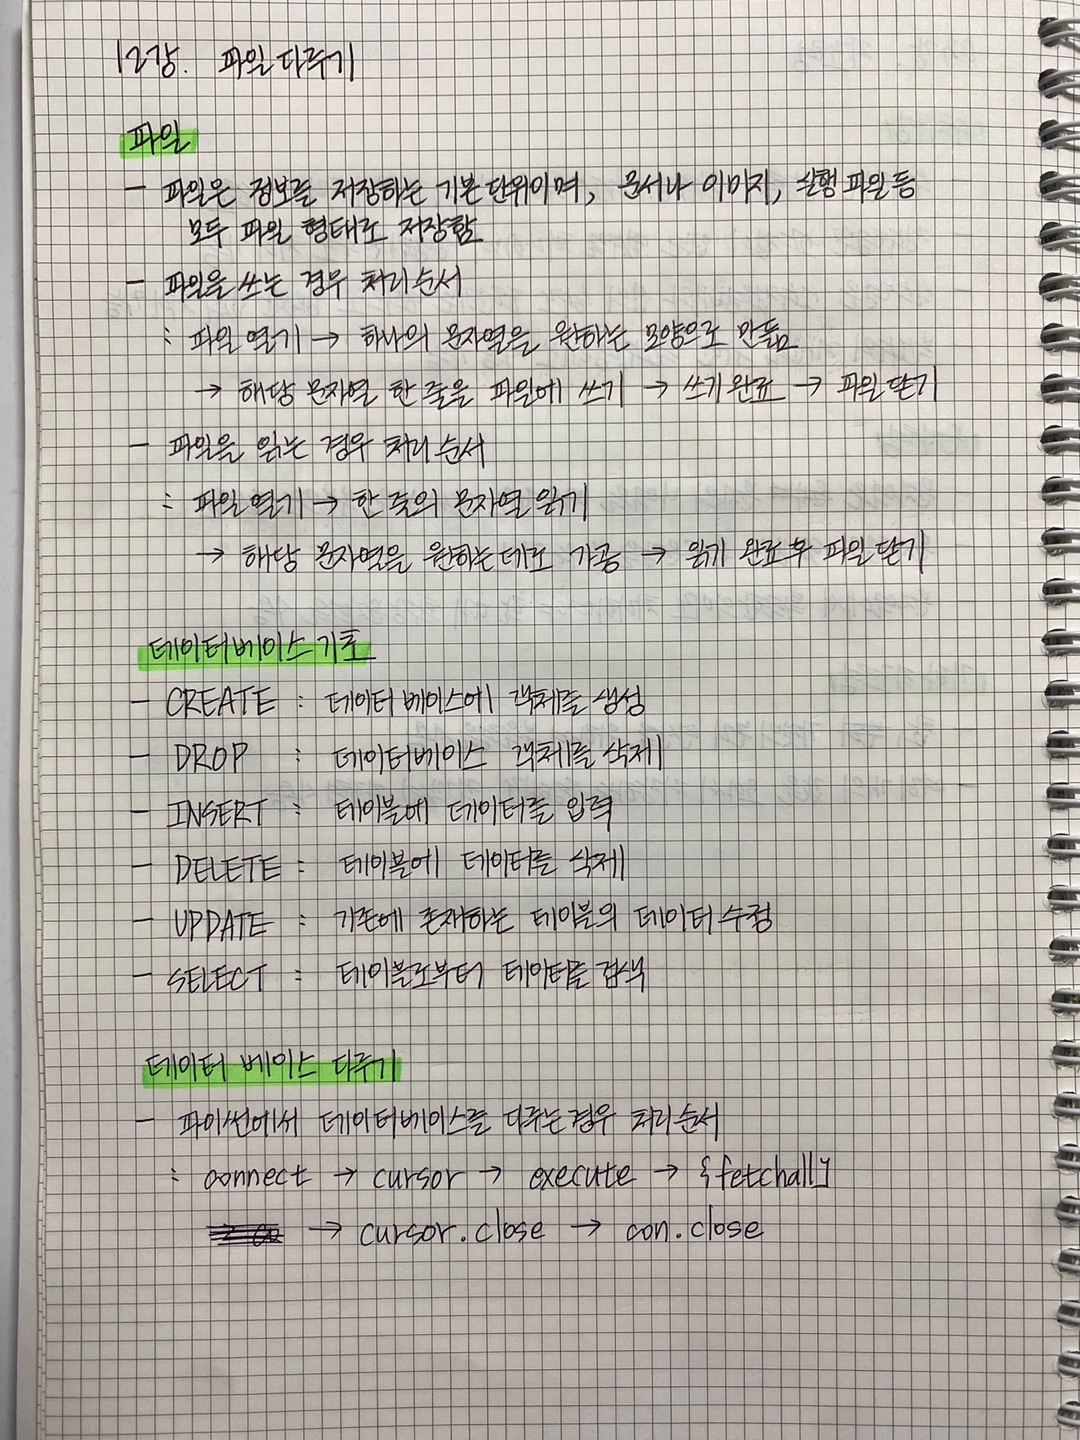 12강. 파일 다루기
파일
- 파일은 정보를 저장하는 기본 단위이며, 문서나 이미지, 실행 파일 등
모두 파일 형태로 저장함
- 파일을 쓰는 경우 처리 순서
: 파일 열기 → 하나의 문자열을 원하는 모양으로 만듦
→ 해당 문자열 한 줄을 파일에 쓰기 → 쓰기 완료 → 파일 닫기
- 파일을 읽는 경우 처리 순서
: 파일 열기 → 한 줄의 문자열 읽기
→ 해당 문자열을 원하는대로 가공 → 읽기 완료 후 파일 닫기
데이터베이스 기초
- CREATE : 데이터베이스에 객체를 생성
- DROP : 데이터베이스 객체를 삭제
- INSERT : 테이블에 데이터를 입력
- DELETE : 테이블에 데이터를 삭제
- UPDATE : 기존에 존재하는 테이블의 데이터 수정
- SELECT : 테이블로부터 데이터를 검색
데이터 베이스 다루기
- 파이썬에서 데이터베이스를 다루는 경우 처리 순서
: connect → cursor → execute → {fetchall}
→ cursor.close → con.close